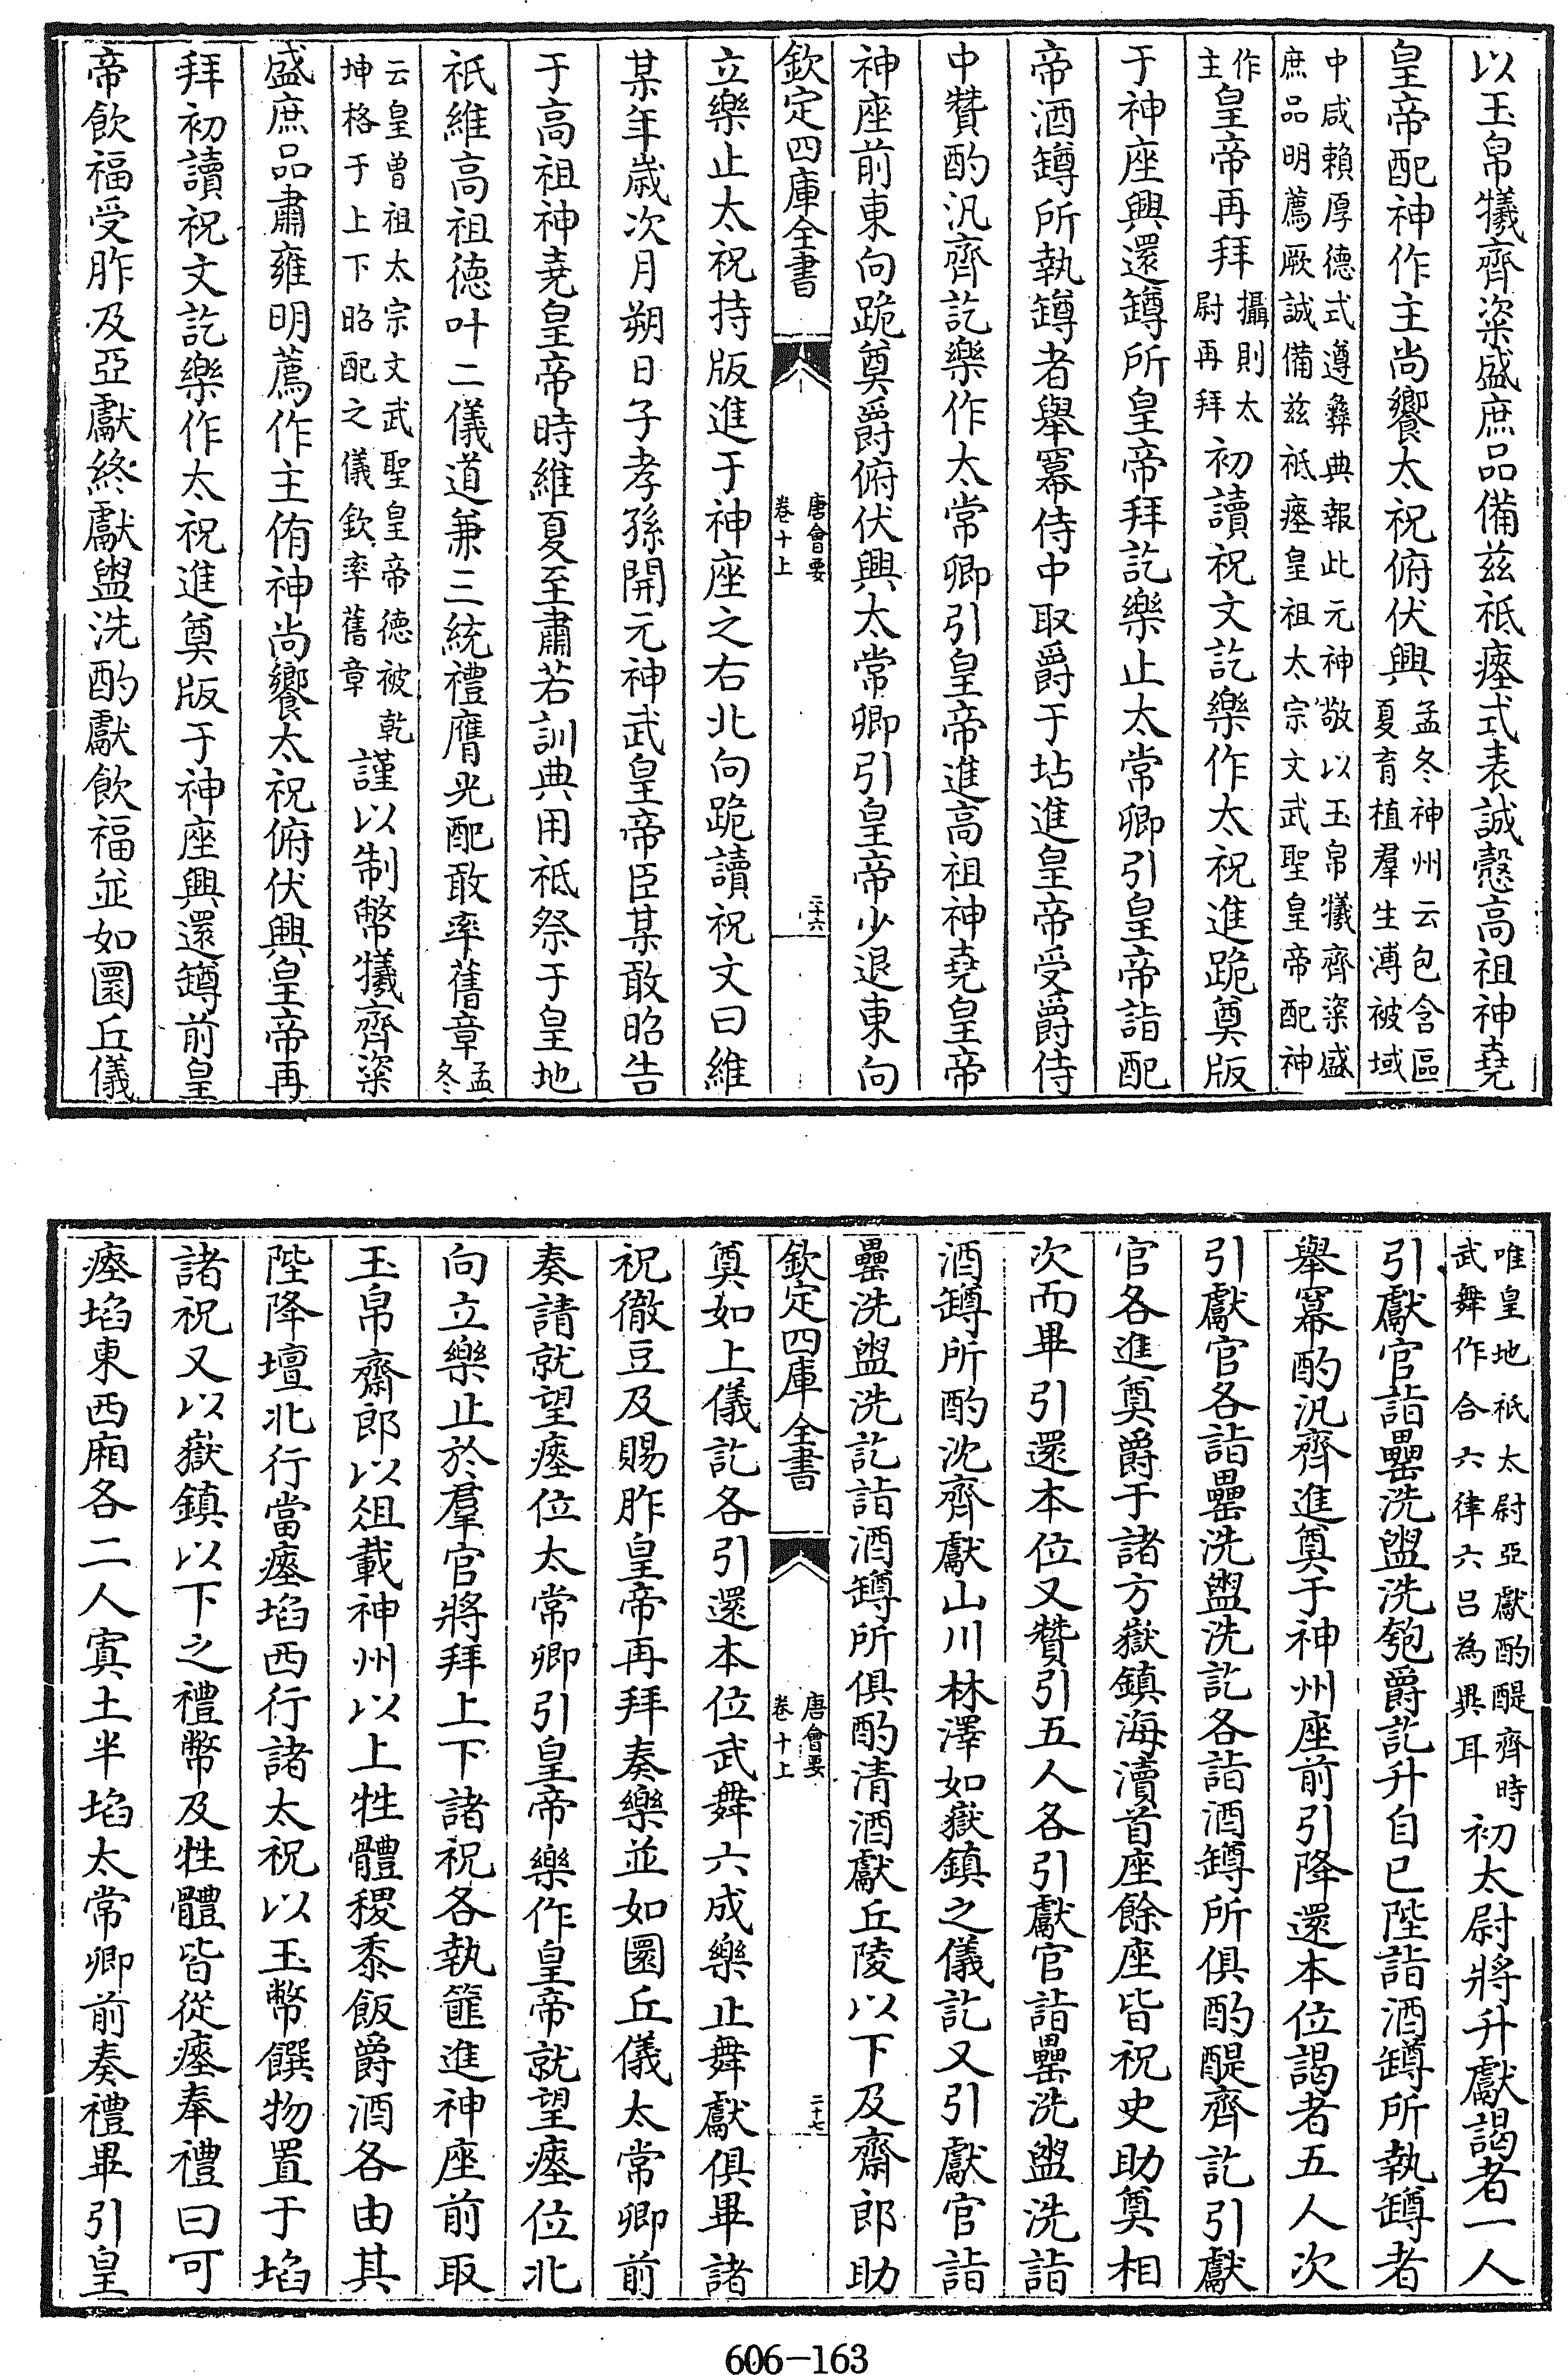 以玉帛犧齊粢盛庶品備兹祗瘞式表誠慤高祖神堯
皇帝配神作主尚饗太祝俯伏興孟冬神州云包含區
夏育植羣生溥被域
中咸賴厚德式遵彝典報此元神敬以玉帛犧齊粢盛
庶品明薦厥誠備兹祗瘞皇祖太宗文武聖皇帝配神
作
主皇帝再拜攝則太
尉再拜初讀祝文訖樂作太祝進跪奠版
于神座興還罇所皇帝拜訖樂止太常卿引皇帝詣配
帝酒罇所執罇者舉冪侍中取爵于坫進皇帝受爵侍
中贊酌汎齊訖樂作太常卿引皇帝進高祖神堯皇帝
神座前東向跪奠爵俯伏興太常卿引皇帝少退東向
欽定四庫全書
唐會要
卷十上
二十六
立樂止太祝持版進于神座之右北向跪讀祝文曰維
某年歲次月朔日子孝孫開元神武皇帝臣某敢昭告
于高祖神堯皇帝時維夏至肅若訓典用祗祭于皇地
祇維高祖德叶二儀道兼三統禮膺光配敢率舊章孟
冬
云皇曾祖太宗文武聖皇帝德被乾
坤格于上下昭配之儀欽率舊章謹以制幣犧齊粢
盛庶品肅雍明薦作主侑神尚饗太祝俯伏興皇帝再
拜初讀祝文訖樂作太祝進奠版于神座興還罇前皇
帝飲福受胙及亞獻終獻盥洗酌獻飲福並如圜丘儀
唯皇地祇太尉亞獻酌醍齊時
武舞作合六律六呂為異耳初太尉將升獻謁者一人
引獻官詣罍洗盥洗匏爵訖升自巳陛詣酒罇所執罇者
舉冪酌汎齊進奠于神州座前引降還本位謁者五人次
引獻官各詣罍洗盥洗訖各詣酒罇所俱酌醍齊訖引獻
官各進奠爵于諸方嶽鎮海瀆首座餘座皆祝史助奠相
次而畢引還本位又贊引五人各引獻官詣罍洗盥洗詣
酒罇所酌沈齊獻山川林澤如嶽鎮之儀訖又引獻官詣
罍洗盥洗訖詣酒罇所俱酌清酒獻丘陵以下及齋郎助
欽定四庫全書
唐會要
卷十上
二十七
奠如上儀訖各引還本位武舞六成樂止舞獻俱畢諸
祝徹豆及賜胙皇帝再拜奏樂並如圜丘儀太常卿前
奏請就望瘞位太常卿引皇帝樂作皇帝就望瘞位北
向立樂止於羣官將拜上下諸祝各執篚進神座前取
玉帛齋郎以俎載神州以上牲體稷黍飯爵酒各由其
陛降壇北行當瘞埳西行諸太祝以玉幣饌物置于埳
諸祝又以嶽鎮以下之禮幣及牲體皆從瘞奉禮曰可
瘞埳東西廂各二人寘土半埳太常卿前奏禮畢引皇
606-163